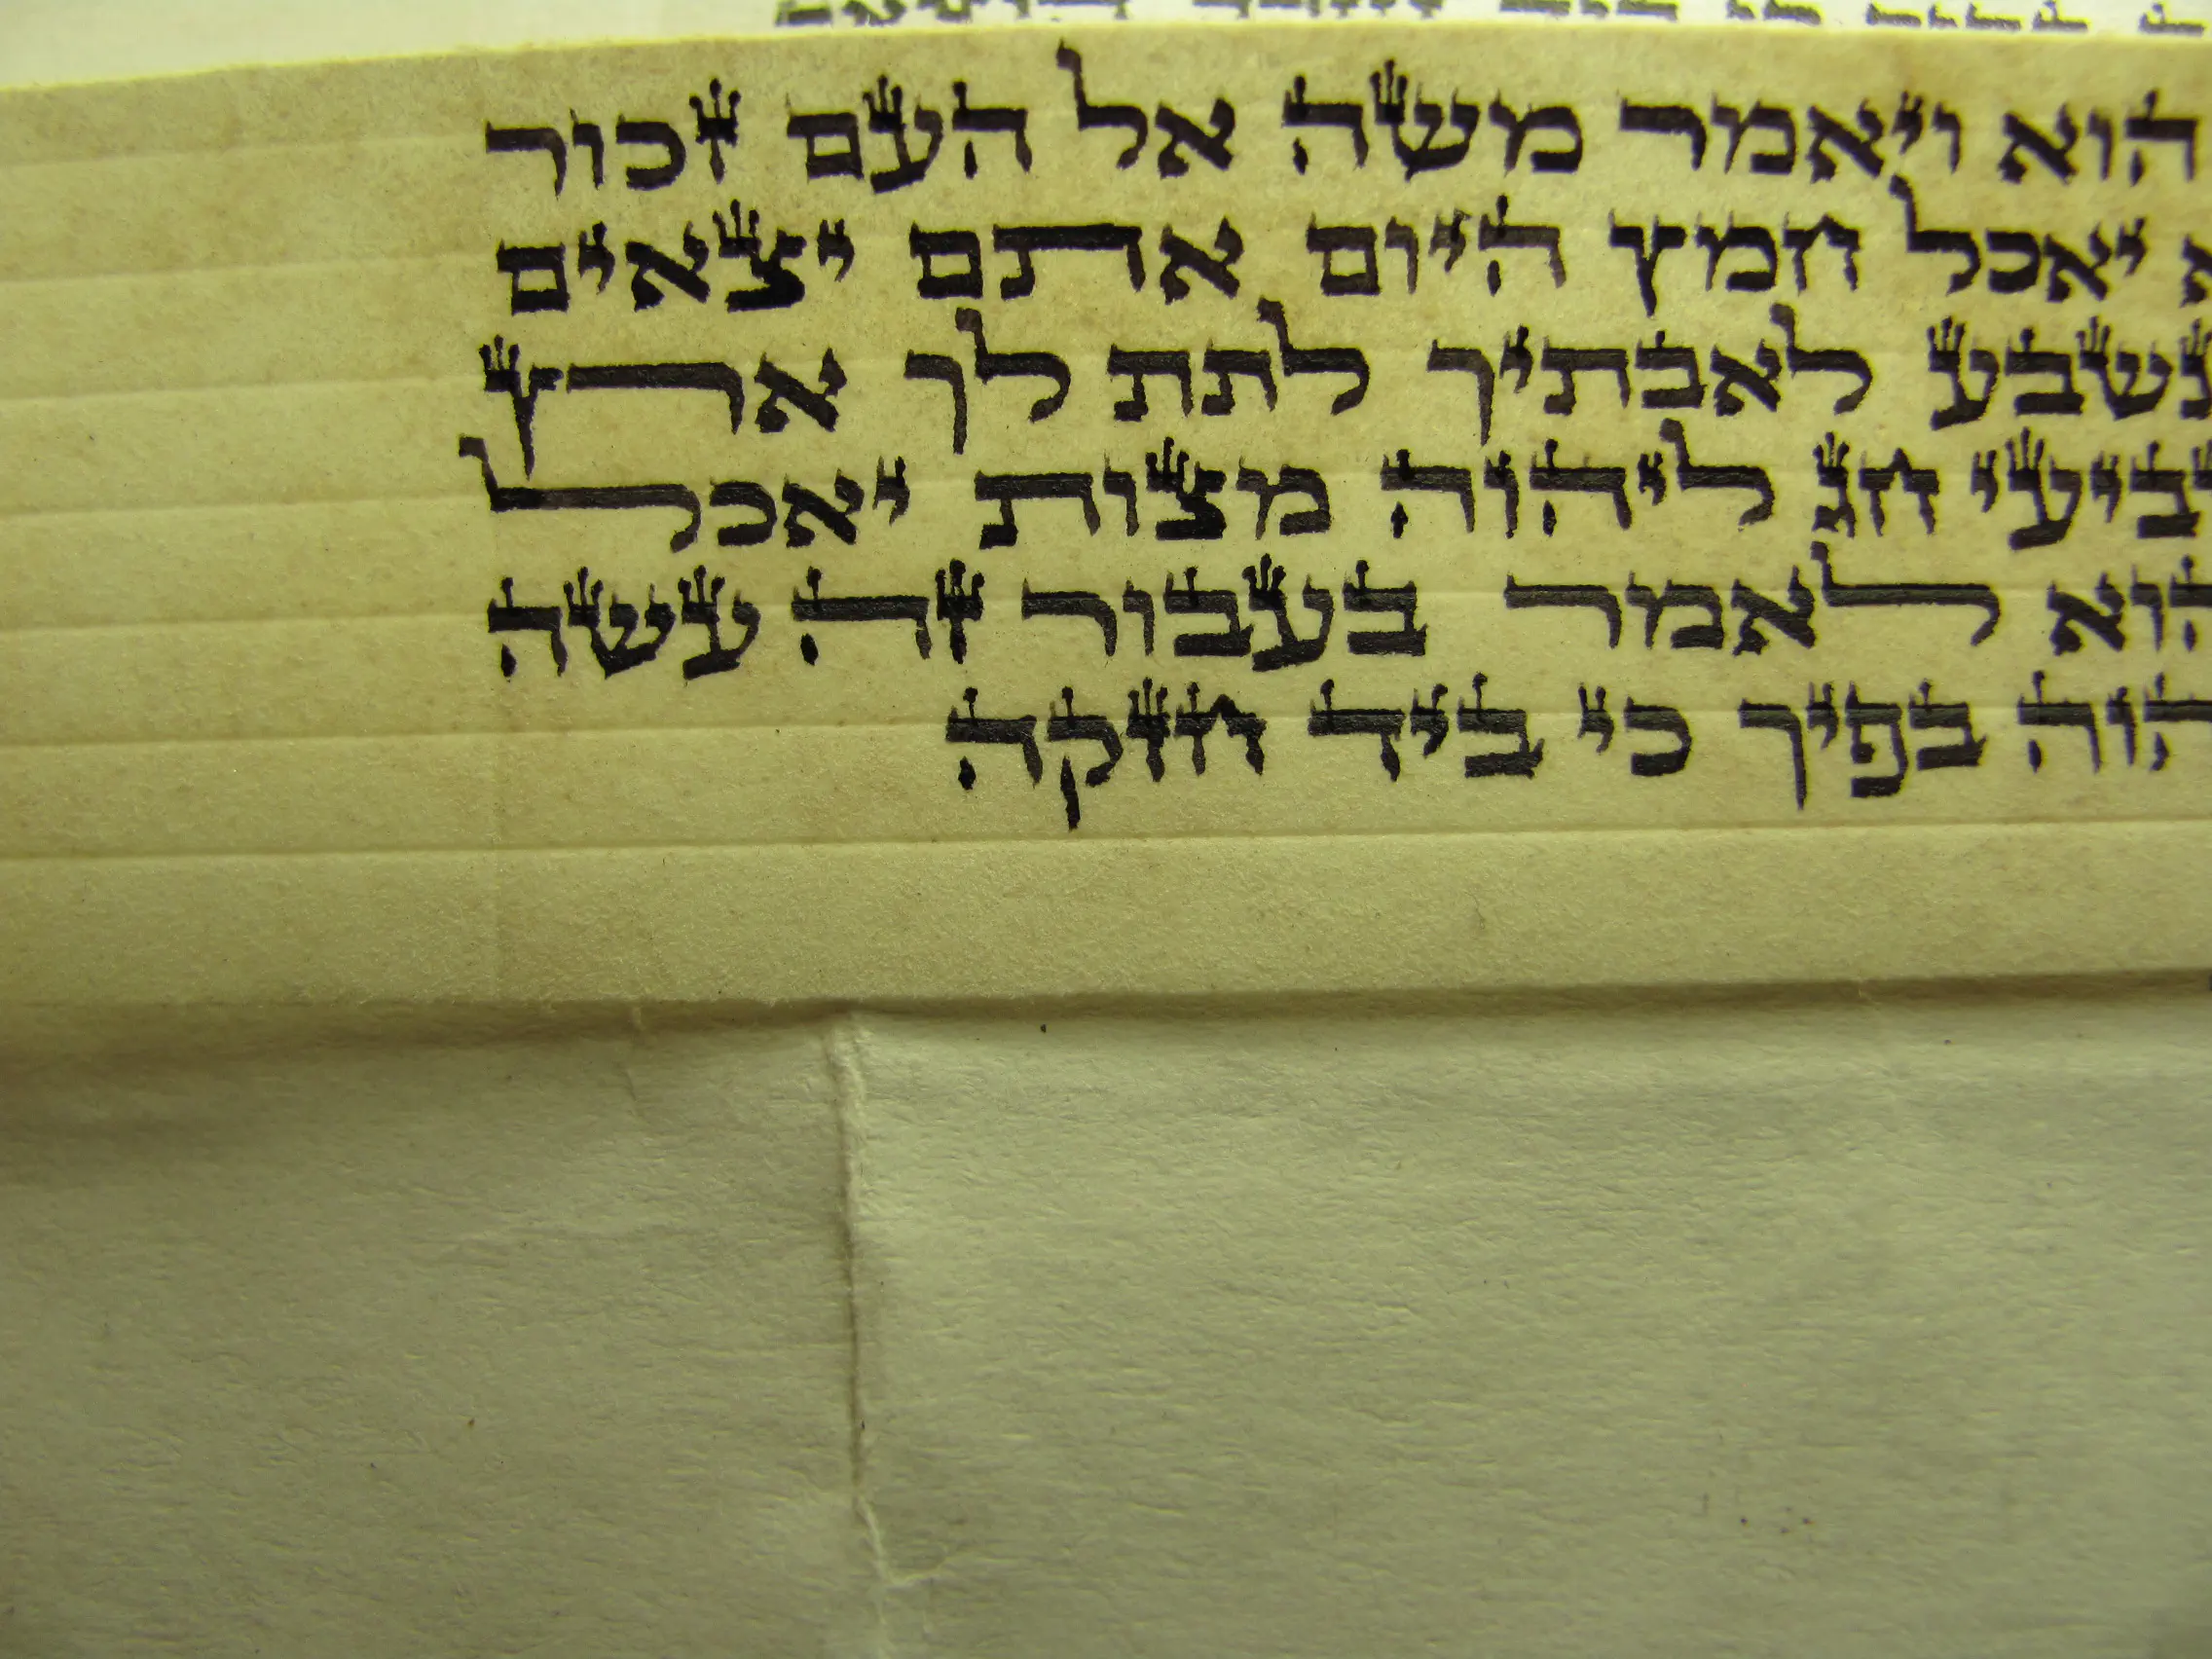 הוא ויאמר משה אל העם זכור
א יאכל חמץ היום אתם יצאים
נשבע לאבתיך לתת לך ארץ
ביעי חג ליהוה מצות יאכל
הוא לאמר בעבור זה עשה
הוה בפיך כי ביד חזקה